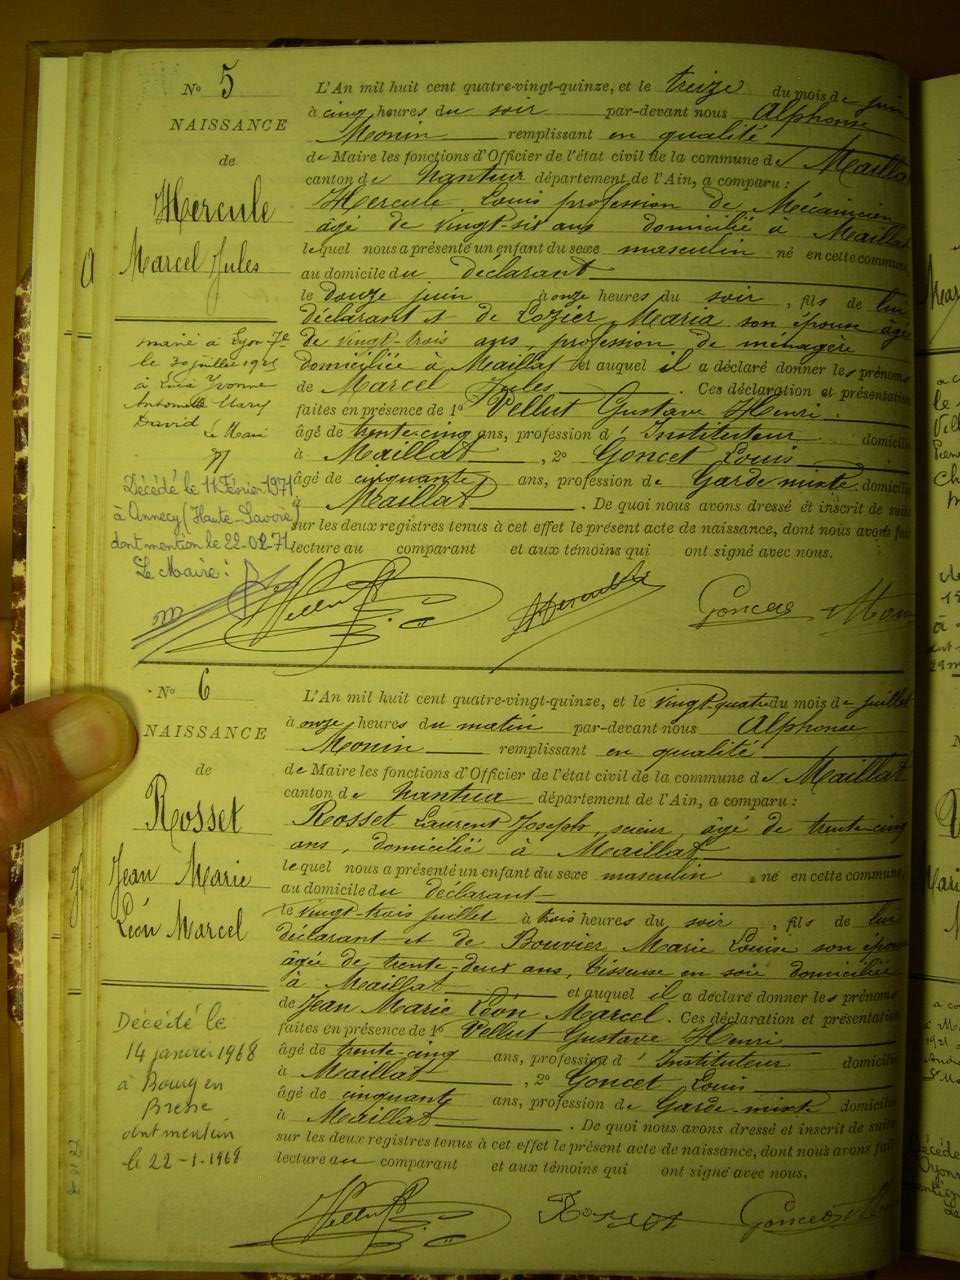 N° 5
NAISSANCE
de
Hercule
Marcel Jules
marié à Lyon 7e
le 30 juillet 1925
à Yvonne
Antoinette
David
Le Maire
Décédé le 11 Février 1971
à Annecy (Haute-Savoie)
dont mention le 22-02-71
Le Maire :
L'An mil huit cent quatre-vingt-quinze, et le treize du mois de juin
à cinq heures du soir par-devant nous Alphonse
Monin remplissant en qualité
de Maire les fonctions d'Officier de l'état civil de la commune de Maillat
canton de Nantua département de l'Ain, a comparu :
Hercule Louis profession de Mécanicien
âgé de vingt-six ans domicilié à Maillat
lequel nous a présenté un enfant du sexe masculin né en cette commune,
au domicile du déclarant
le douze juin à onze heures du soir, fils de lui
déclarant et de Lozier Maria son épouse âgée
de vingt-trois ans, profession de ménagère
domiciliée à Maillat et auquel il a déclaré donner les prénoms
de Marcel Jules Ces déclaration et présentation
faites en présence de 1° Vellut Gustave Henri
âgé de trente-cinq ans, profession d'Instituteur domicilié
à Maillat, 2° Goncet Louis
âgé de cinquante ans, profession de Garde-mixte domicilié
Maillat. De quoi nous avons dressé et inscrit de suite
sur les deux registres tenus à cet effet le présent acte de naissance, dont nous avons fait
lecture au comparant et aux témoins qui ont signé avec nous.
Vellut Hercule Goncet Mon
N° 6
NAISSANCE
de
Rosset
Jean Marie
Léon Marcel
Décédé le
14 janvier 1968
à Bourg en
Bresse
dont mention
le 22-1-1968
L'An mil huit cent quatre-vingt-quinze, et le vingt-quatre du mois de juillet
à onze heures du matin par-devant nous Alphonse
Monin remplissant en qualité
de Maire les fonctions d'Officier de l'état civil de la commune de Maillat
canton de Nantua département de l'Ain, a comparu :
Rosset Laurent Joseph, scieur, âgé de trente-cinq
ans, domicilié à Maillat
lequel nous a présenté un enfant du sexe masculin né en cette commune,
au domicile du déclarant
le vingt-trois juillet à trois heures du soir, fils de lui
déclarant et de Bouvier Marie Louise son épouse
âgée de trente-deux ans, tisseuse en soie domiciliée
à Maillat et auquel il a déclaré donner les prénoms
de Jean Marie Léon Marcel. Ces déclaration et présentation
faites en présence de 1° Vellut Gustave Henri
âgé de trente-cinq ans, profession d'Instituteur domicilié
à Maillat, 2° Goncet Louis
âgé de cinquante ans, profession de Garde-mixte domicilié
à Maillat. De quoi nous avons dressé et inscrit de suite
sur les deux registres tenus à cet effet le présent acte de naissance, dont nous avons fait
lecture au comparant et aux témoins qui ont signé avec nous.
Vellut Rosset Goncet